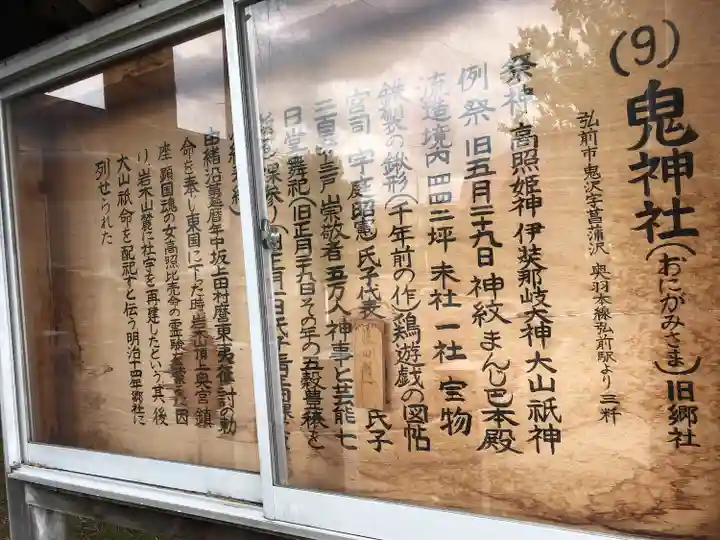 (9)鬼神社(おにがみさま)旧郷社
弘前市鬼沢字菖蒲沢 奥羽本線弘前駅より三粁
祭神 高照姫神 伊装那岐大神 大山祇神
例祭 旧五月二十九日 神紋 まんじ巴 本殿
流造 境内 四四二坪 末社 一社 宝物
鉄製の鍬形(千年前の作)鶏遊戯の図帖
宮司 宇庭昭憲 氏子代表 氏子
二百 三戸 崇敬者 五万人 神事と芸能 七
日堂舞祀(旧正月二十九日その年の五穀豊穣を
由緒沿革 暦年中坂上田村麿東夷征討の勅
命を奉じ東国に下った時岩木山頂上奥宮鎮
座 顕国魂の女高照比売命の霊験 因
り、岩木山麓に社宇を再建したという其の後
大山祇命を配祀すと伝う明治十四年郷社に
列せられた